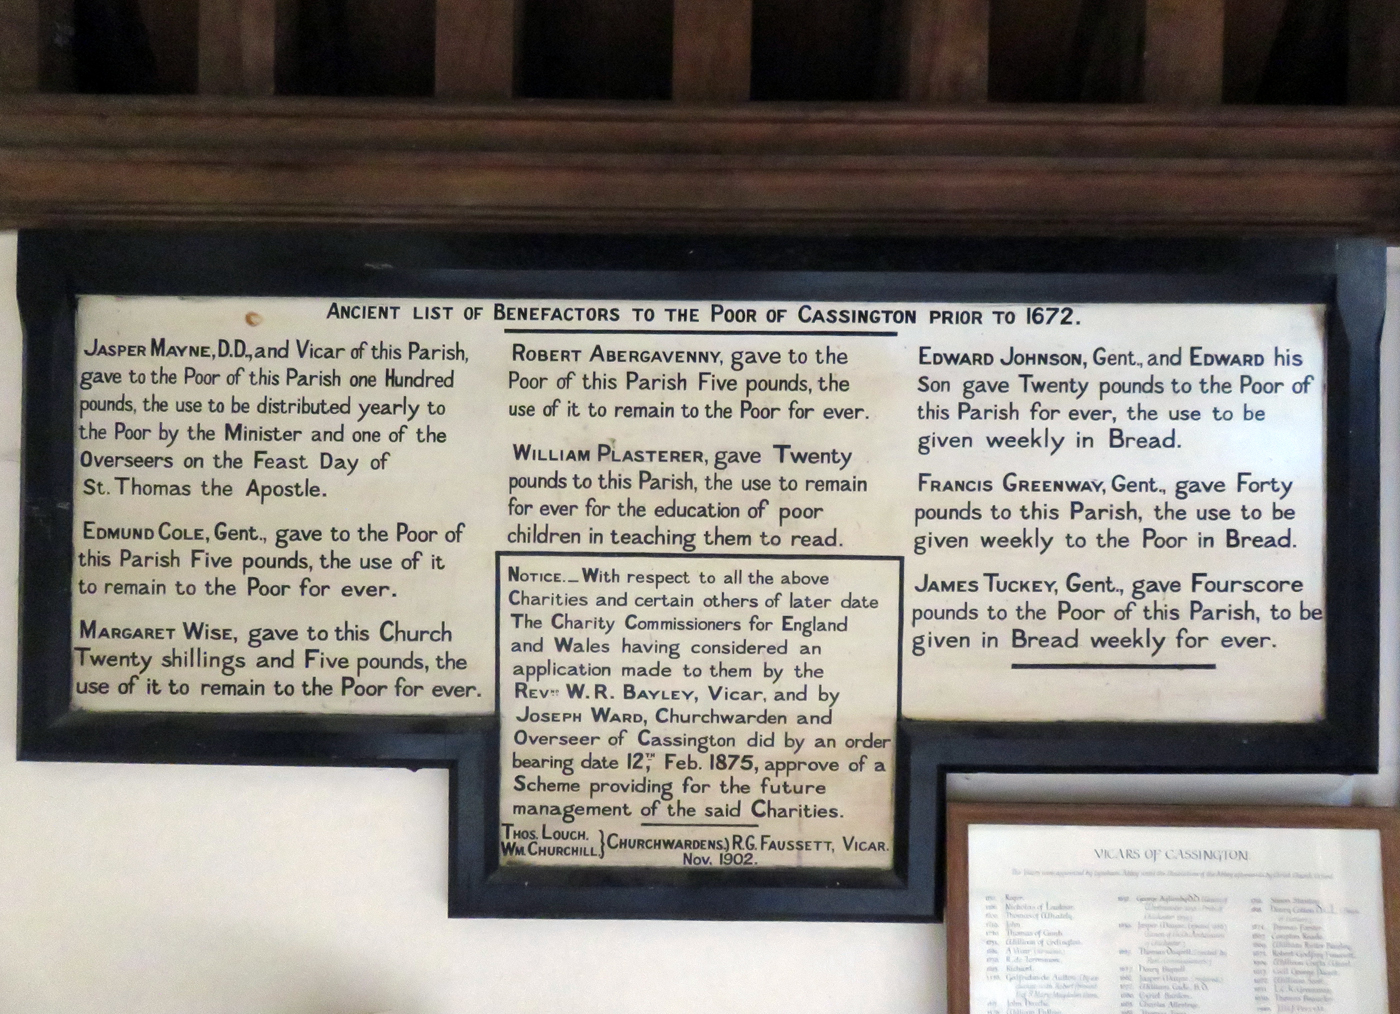 ANCIENT LIST OF BENEFACTORS TO THE POOR OF CASSINGTON PRIOR TO 1672.
JASPER MAYNE, D.D., and Vicar of this Parish,
gave to the Poor of this Parish one Hundred
pounds, the use to be distributed yearly to
the Poor by the Minister and one of the
Overseers on the Feast Day of
St. Thomas the Apostle.
EDMUND COLE, Gent., gave to the Poor of
this Parish Five pounds, the use of it
to remain to the Poor for ever.
MARGARET WISE, gave to this Church
Twenty shillings and Five pounds, the
use of it to remain to the Poor for ever.
ROBERT ABERGAVENNY, gave to the
Poor of this Parish Five pounds, the
use of it to remain to the Poor for ever.
WILLIAM PLASTERER, gave Twenty
pounds to this Parish, the use to remain
for ever for the education of poor
children in teaching them to read.
NOTICE._With respect to all the above
Charities and certain others of later date
The Charity Commissioners for England
and Wales having considered an
application made to them by the
REVD. W. R. BAYLEY, Vicar, and by
JOSEPH WARD, Churchwarden and
Overseer of Cassington did by an order
bearing date 12TH, Feb. 1875, approve of a
Scheme providing for the future
management of the said Charities.
THOS. LOUCH.
WM. CHURCHILL.} CHURCHWARDENS.) R.G. FAUSSETT, VICAR.
Nov. 1902.
EDWARD JOHNSON, Gent., and EDWARD his
Son gave Twenty pounds to the Poor of
this Parish for ever, the use to be
given weekly in Bread.
FRANCIS GREENWAY, Gent., gave Forty
pounds to this Parish, the use to be
given weekly to the Poor in Bread.
JAMES TUCKEY, Gent., gave Fourscore
pounds to the Poor of this Parish, to be
given in Bread weekly for ever.
VICARS OF CASSINGTON